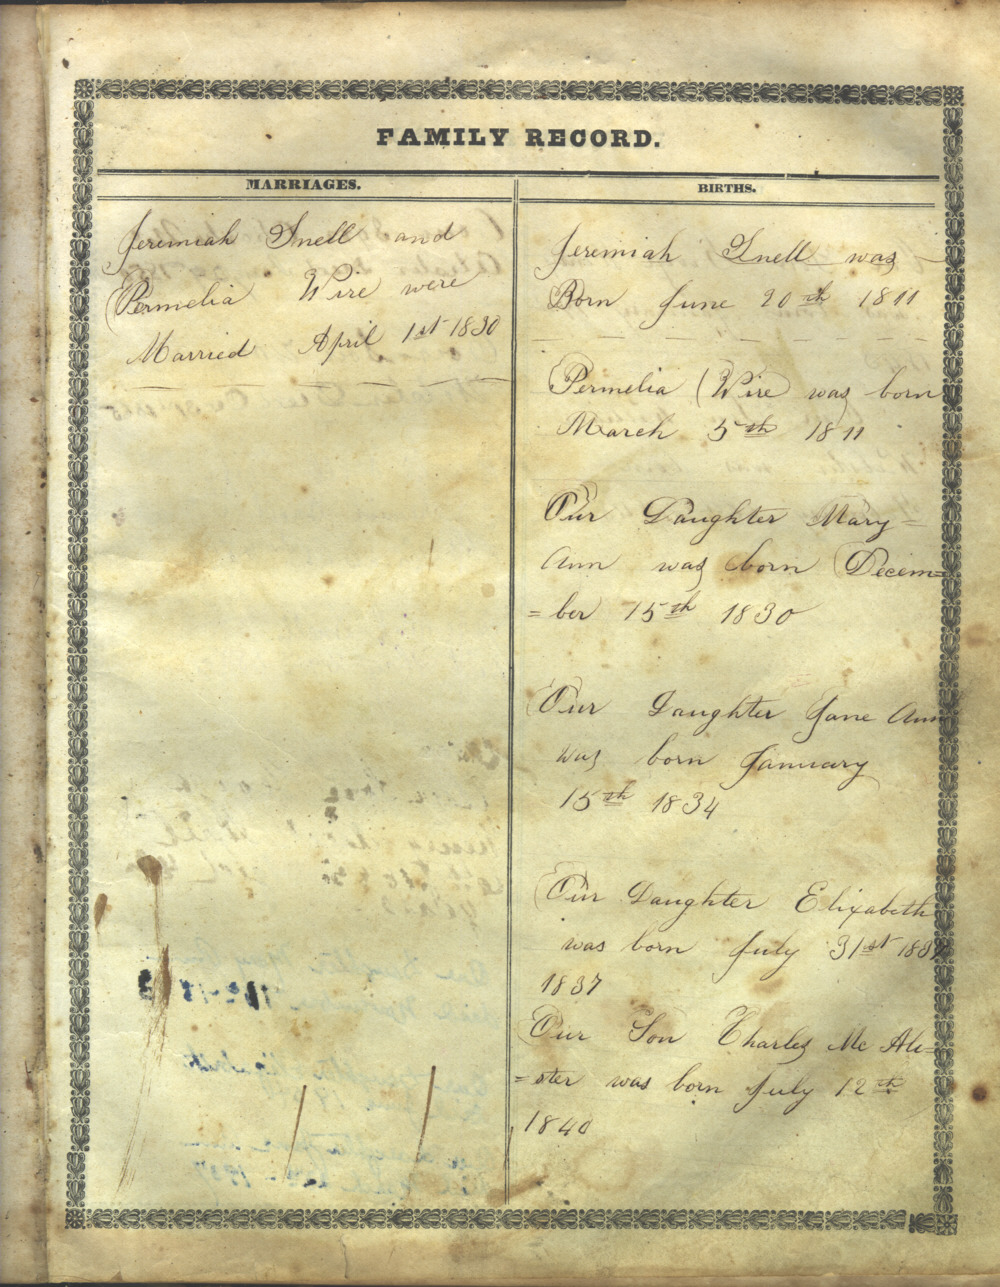 FAMILY RECORD.
MARRIAGES.
Jeremiah Snell and
Permelia Wire were
Married April 1st 1830
BIRTHS.
Jeremiah Snell was
Born June 20th 1811
Permelia Wire was born
March 5th 1811
Our Daughter Mary=
Ann was born Decem=
=ber 15th 1830
Our Daughter Jane Ann
was born January
15th 1834
Our Daughter Elizabeth
was born July 31st 1837
1837
Our Son Charles Mc Ale=
=ster was born July 12th
1840